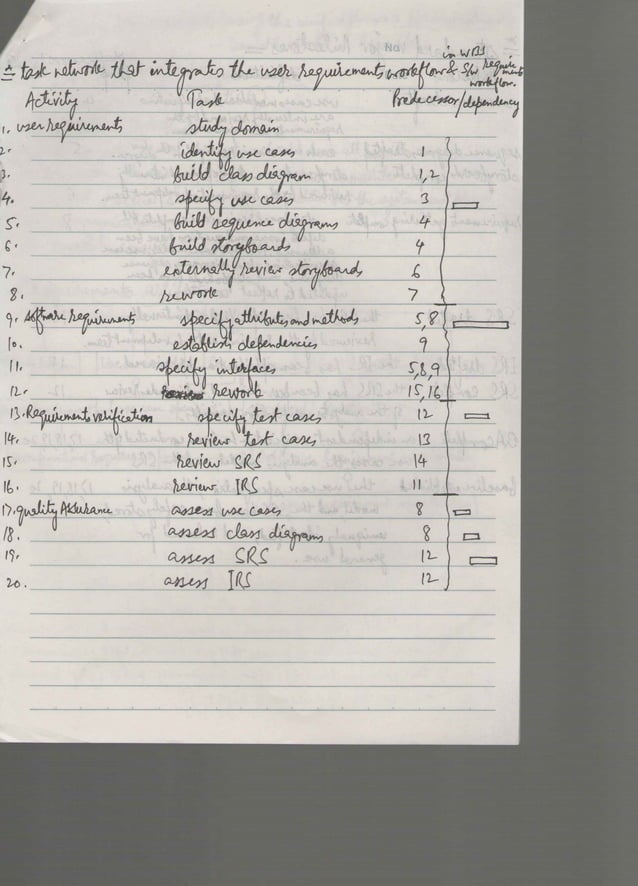 in WBS
≙ task network that integrates the user requirements workflow & S/w requirements workflow.
Activity Task Predecessor/dependency
1. user requirements study domain
2. identify use cases 1
3. build class diagram 1,2
4. specify use cases 3
5. build sequence diagrams 4
6. build storyboards 4
7. externally review storyboards 6
8. rework 7
9. software requirements specify attributes and methods 5,8
10. establish dependencies 9
11. specify interfaces 5,8,9
12. rework 15,16
13. Requirements verification specify test cases 12
14. review test cases 13
15. review SRS 14
16. review IRS 11
17. quality Assurance assess use cases 8
18. assess class diagrams 8
19. assess SRS 12
20. assess IRS 12